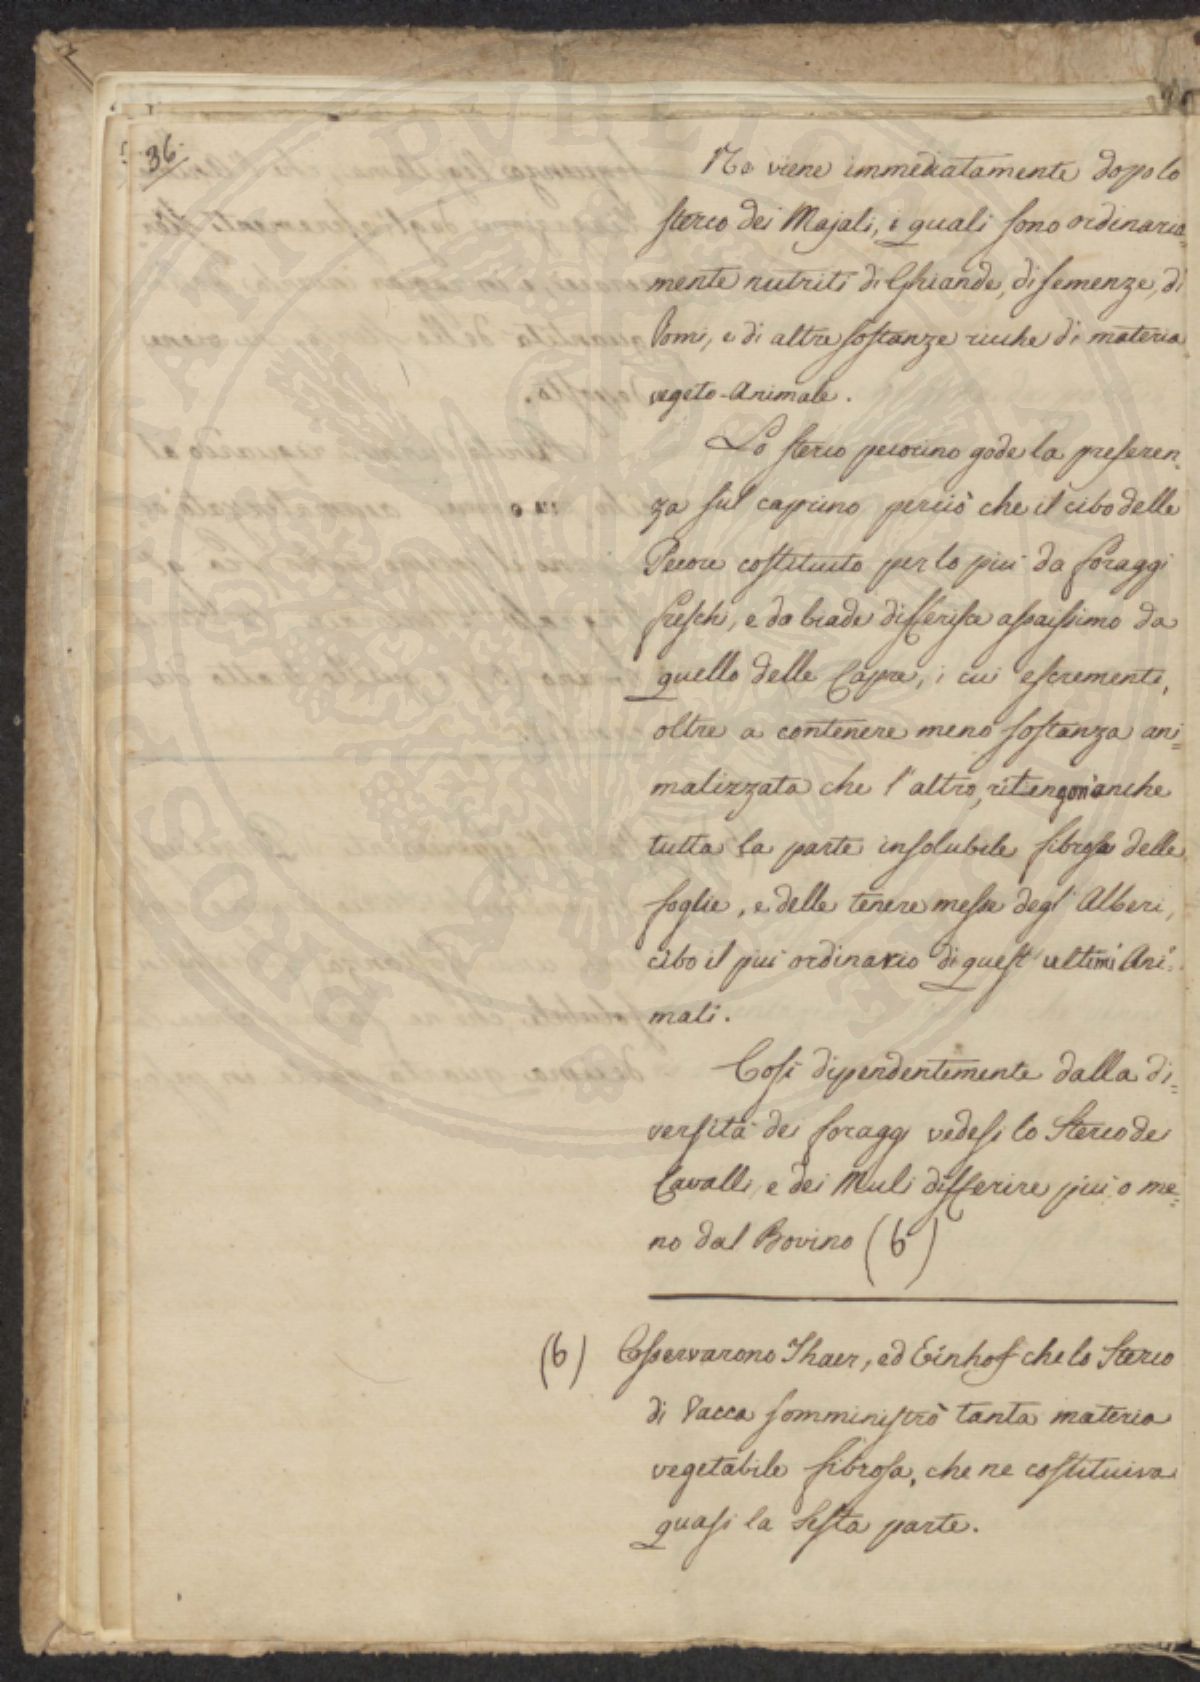 36.
Ne viene immediatamente dopo lo
sterco dei Majali, i quali sono ordinaria=
mente nutriti di Ghiande, di semenze, di
Pomi, e di altre sostanze ricche di materia
vegeto-Animale.
Lo sterco pecorino gode la preferen=
za sul caprino perciò che il cibo delle
Pecore costituito per lo più da foraggi
freschi, e da biade differisce assaissimo da
quello delle Capre, i cui escrementi,
oltre a contenere meno sostanza ani=
malizzata che l'altro, ritengon anche
tutta la parte insolubile fibrosa delle
foglie, e delle tenere messe degl'Alberi,
cibo il più ordinario di quest'ultimi Ani=
mali.
Così dipendentemente dalla di=
versità dei foraggi vedesi lo Sterco de
Cavalli, e dei Muli differire più o me=
no dal Bovino (b)
(b) Osservarono Thaer, ed Einhof che lo Sterco
di Vacca somministrò tanta materia
vegetabile fibrosa, che ne costituiva
quasi la Sesta parte.